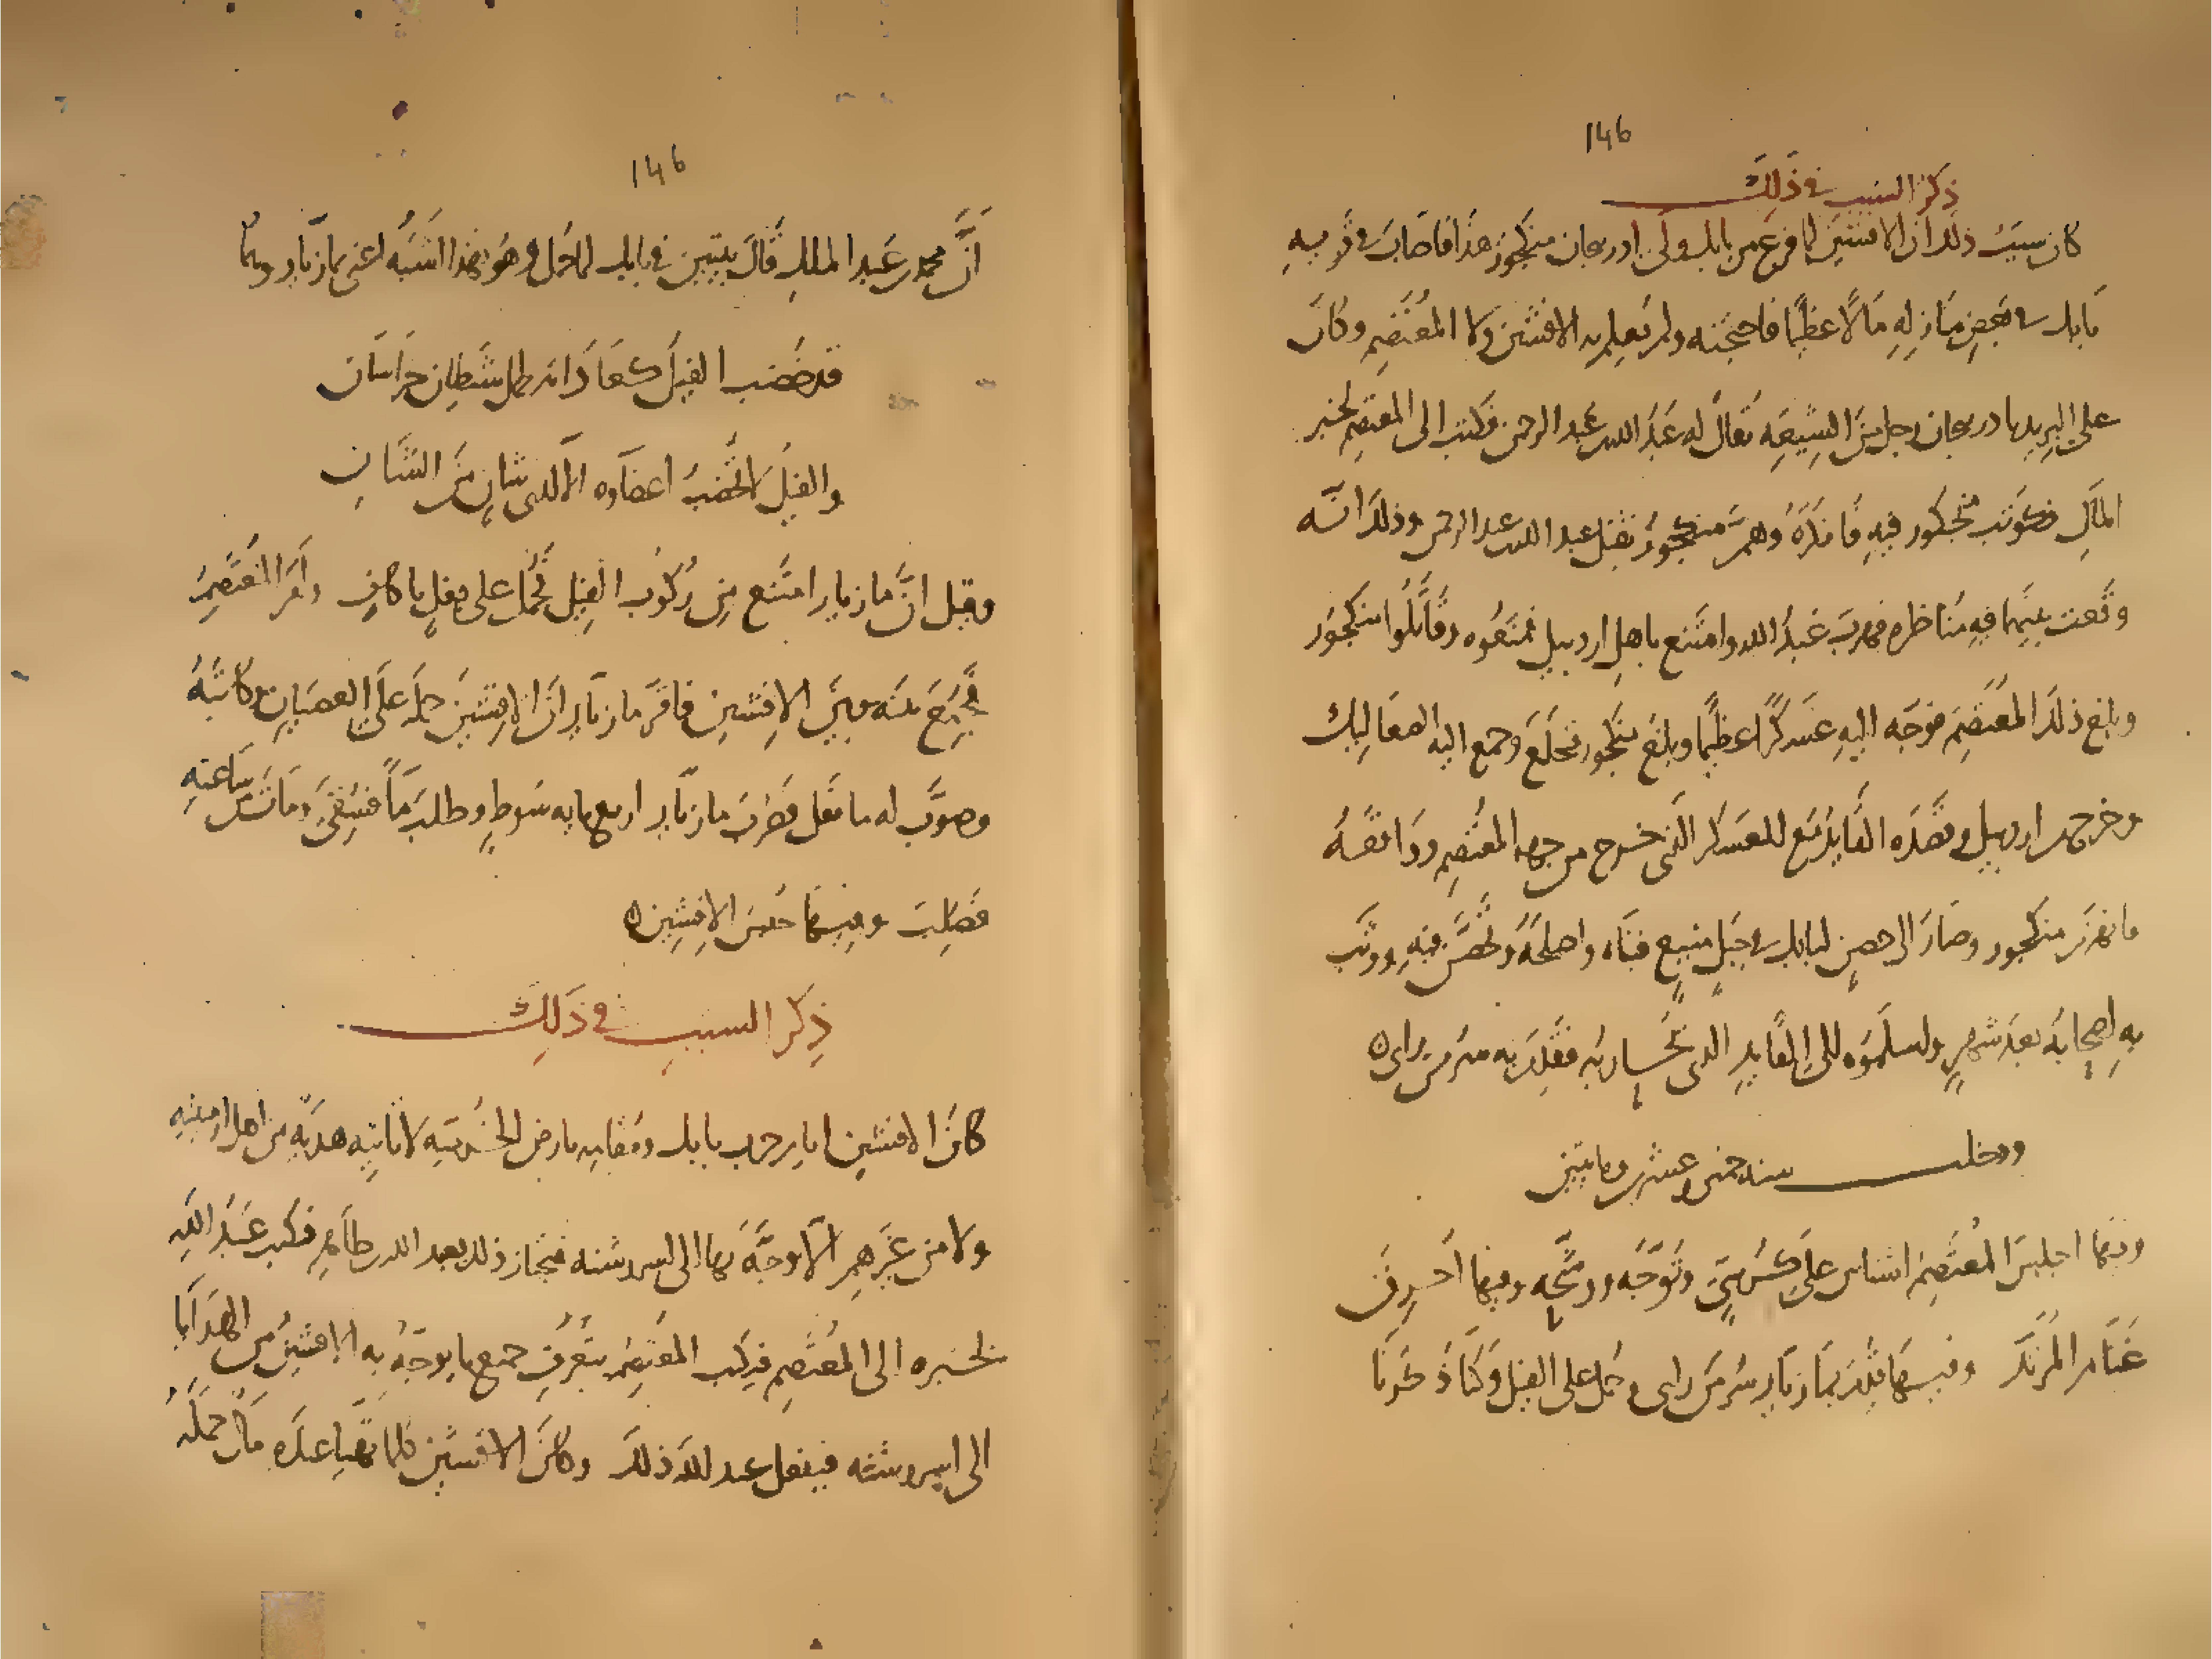 146
ذكر السبب في ذلك
كان سبب ذلك ان الافشين لما فرغ من بابك ولى ادربيجان منكجور هذا فاصاب في قرية
بابك في بعض منازله مالا عظيما فاحتجنه ولم يعلم به الافشين ولا المعتصم وكان
على البريد بادربيجان رجل من الشيعه يقال له عبد الله بن عبد الرحمن فكتب الى المعتصم بخبر
المال فكوتب منجكور فيه فانكره وهم منكجور بقتل عبد الله بن عبد الرحمن وذلك انه
وقعت بينهما فيه مناظره فهرب عبد الله وامتنع باهل اردبيل فمنعوه وقاتلوا منكجور
وبلغ ذلك المعتصم فوجه اليه عسكرا عظيما وبلغ منكجور فخلع وجمع اليه الصعاليك
وخرج من اردبيل وقصده القايد مع العسكر الذي خرج من جهه المعتصم وواقعه
فانهزم منكجور وصار الى حصن لبابك في جبل منيع فبناه واصلحه وتحصن فيه ووثب
به اصحابه بعد شهر واسلموه الى القايد الذي يحاربه فقدم به سر من راى
ودخلت سنه خمس وعشرين ومايتين
وفيها اجلس المعتصم اشناس على كرسي وتوجه ووشحه وفيها احرق
غنام المرتد وفيها قدم بمازيار سر من راى وحمل على الفيل وكنا ذكرنا
146
ان محمد بن عبد الملك قال بيتين في بابك لما حمل وهو بهذا اشبه اعني بمازيار وهما
قد خضب الفيل كعاداته يحمل شيطان خراسان
والفيل لا تخضب اعضاوه الا لذي شان من الشان
وقيل ان مازيار امتنع من ركوب الفيل فحمل على بغل باكاف وامر المعتصم
فجمع بينه وبين الافشين فاقر مازيار ان الافشين حمله على العصيان وكاتبه
وصوب له ما فعل فضرب مازيار اربع مايه سوط وطلب ماء فسقي ومات من ساعته
فصلب وفيها حبس الافشين
ذكر السبب في ذلك
كان الافشين ايام حرب بابك ومقامه بارض الخرميه لا تاتيه هديه من اهل ارمينيه
ولا من غيرهم الا وجه بها الى اسروشنه فيجتاز ذلك بعبد الله بن طاهر فكتب عبد الله
بخبره الى المعتصم فيكتب المعتصم بتعرف جميع ما يوجه به الافشين من الهدايا
الى اسروشنه فيفعل عبد الله ذلك وكان الافشين كلما تهيا عنده مال حمله